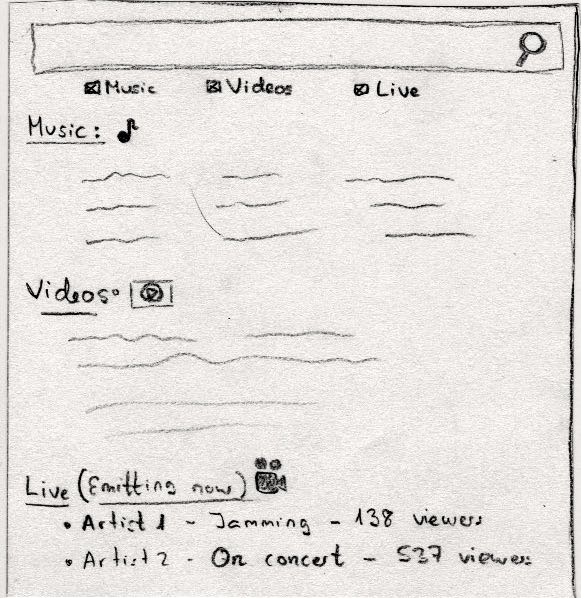 Music Videos Live
Music:
Videos:
Live (Emitting now)
• Artist 1 - Jamming - 138 viewers
• Artist 2 - On concert - 537 viewers